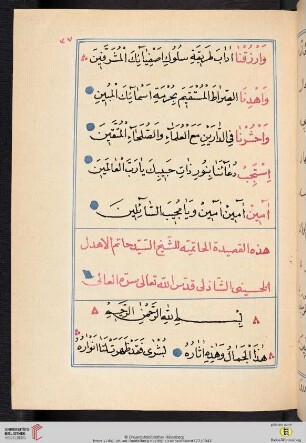 ٤٧
وَارْزُقْنَا آدَابَ طَرِيقَةِ سُلُوكِ اَصْفِيَائِكَ الْمُشَرَّفِينَ
وَاهْدِنَا الصِّرَاطَ الْمُسْتَقِيمَ بِحُرْمَةِ اَسْمَائِكَ الْمُبِينِ
وَاحْشُرْنَا فِي الدَّارَيْنِ مَعَ الْعُلَمَاءِ وَالصُّلَحَاءِ الْمُتَّقِينَ
اِسْتَجِبْ دُعَائَنَا بِنُورِ ذَاتِ حَبِيبِكَ يَا رَبَّ الْعَالَمِينَ
اٰمِينَ اٰمِينَ اٰمِينَ وَيَا مُجِيبَ السَّائِلِينَ
هذه القصيدة الحاتمية للشيخ السيد حاتم الاهدل
الحسيني الشاذلي قدس الله تعالى سره العالي
بِسْمِ اللهِ الرَّحْمٰنِ الرَّحِيمِ
هٰذَا الْجَمَالُ وَهٰذِهِ اٰثَارُهُ بُشْرٰى فَقَدْ ظَهَرَتْ لَنَا اَنْوَارُهُ
UNIVERSITÄTS-
BIBLIOTHEK
HEIDELBERG
© Universitätsbibliothek Heidelberg